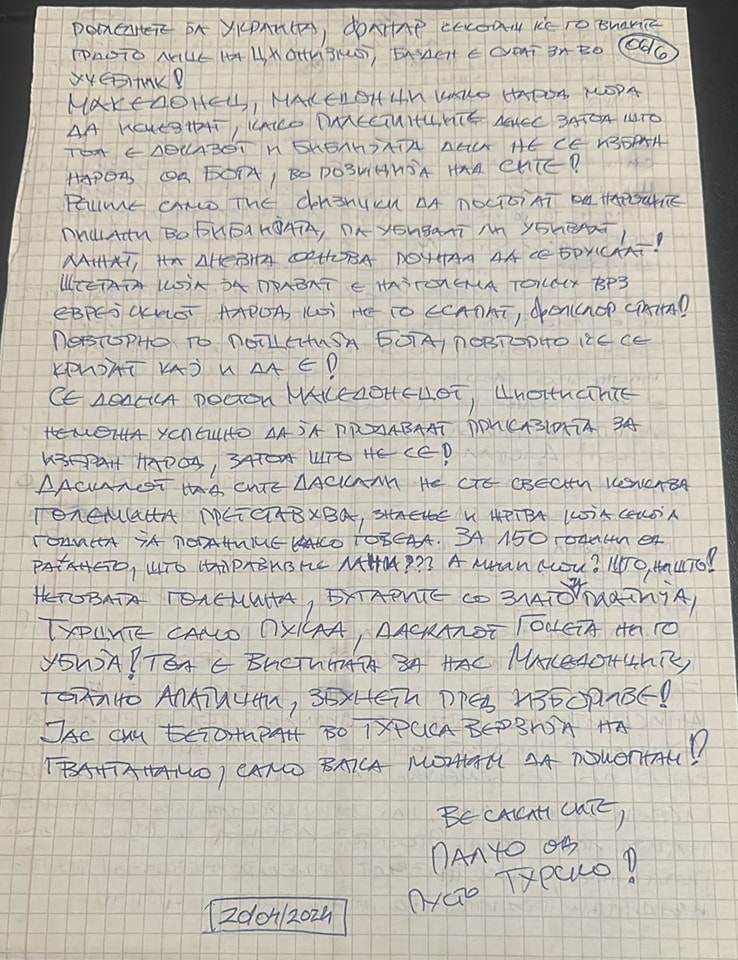 ПОГЛЕДНЕТЕ ЗА УКРАИНА, ФАНАР СЕКОГАШ ЌЕ ГО ВИДИТЕ
ГРДОТО ЛИЦЕ НА ЦИОНИЗМОТ, БАЈДЕН Е СУРАТ ЗА ВО 06/6
УЧЕБНИК!
МАКЕДОНЕЦ, МАКЕДОНЦИ КАКО НАРОД МОРА
ДА ИСЧЕЗНАТ, КАКО ПАЛЕСТИНЦИТЕ ДЕНЕС ЗАТОА ШТО
ТОА Е ДОКАЗОТ И БИБЛИЈАТА ДЕКА НЕ СЕ ИЗБРАН
НАРОД ОД БОГА, ВО ПОЗИЦИЈА НАД СИТЕ!
РЕШИЛЕ САМО ТИЕ ФИЗИЧКИ ДА ПОСТОЈАТ ОД НАРОДИТЕ
ПИШАНИ ВО БИБЛИЈАТА, ПА УБИВААТ ЛИ УБИВААТ,
ЛАЖАТ, НА ДНЕВНА ОСНОВА ПОЧНАА ДА СЕ БРУКААТ!
ШТЕТАТА КОЈА ЈА ПРАВАТ Е НАЈГОЛЕМА ТОКМУ ВРЗ
ЕВРЕЈСКИОТ НАРОД, КОЈ НЕ ГО ЕСАПАТ, ФОЛКЛОР СТАНА!
ПОВТОРНО ГО ПОТЦЕНИЈА БОГА, ПОВТОРНО ЌЕ СЕ
КРИЈАТ КАЈ И ДА Е!
СЕ ДОДЕКА ПОСТОИ МАКЕДОНЕЦОТ, ЦИОНИСТИТЕ
НЕМОЖА УСПЕШНО ДА ЈА ПРОДАВААТ ПРИКАЗНАТА ЗА
ИЗБРАН НАРОД, ЗАТОА ШТО НЕ СЕ!
ДАСКАЛОТ НАД СИТЕ ДАСКАЛИ НЕ СТЕ СВЕСНИ КОЛКАВА
ГОЛЕМИНА ПРЕТСТАВУВА, ЗНАЕЊЕ И ЖРТВА КОЈА СЕКОЈА
ГОДИНА ЈА ПОГАНИМЕ КАКО ГОВЕДА. ЗА 150 ГОДИНИ ОД
РАЃАЊЕТО, ШТО НАПРАВИВМЕ ЛАНИ??? А МИЛИ МОИ? ШТО, НИШТО!
НЕГОВАТА ГОЛЕМИНА, БУГАРИТЕ СО ЗЛАТО ЈА ПЛАТИЈА,
ТУРЦИТЕ САМО ПУКАА, ДАСКАЛОТ ГОЦЕТА НИ ГО
УБИЈА! ТОА Е ВИСТИНАТА ЗА НАС МАКЕДОНЦИТЕ,
ТОТАЛНО АПАТИЧНИ, ЗБУНЕТИ ПРЕД ИЗБОРИВЕ!
ЈАС СУМ БЕТОНИРАН ВО ТУРСКА ВЕРЗИЈА НА
ГВАНТАНАМО, САМО ВАКА МОЖАМ ДА ПОМОГНАМ!
ВЕ САКАМ СИТЕ,
ПАЛЧО ОД
ПУСТО ТУРСКО!
20/04/2024